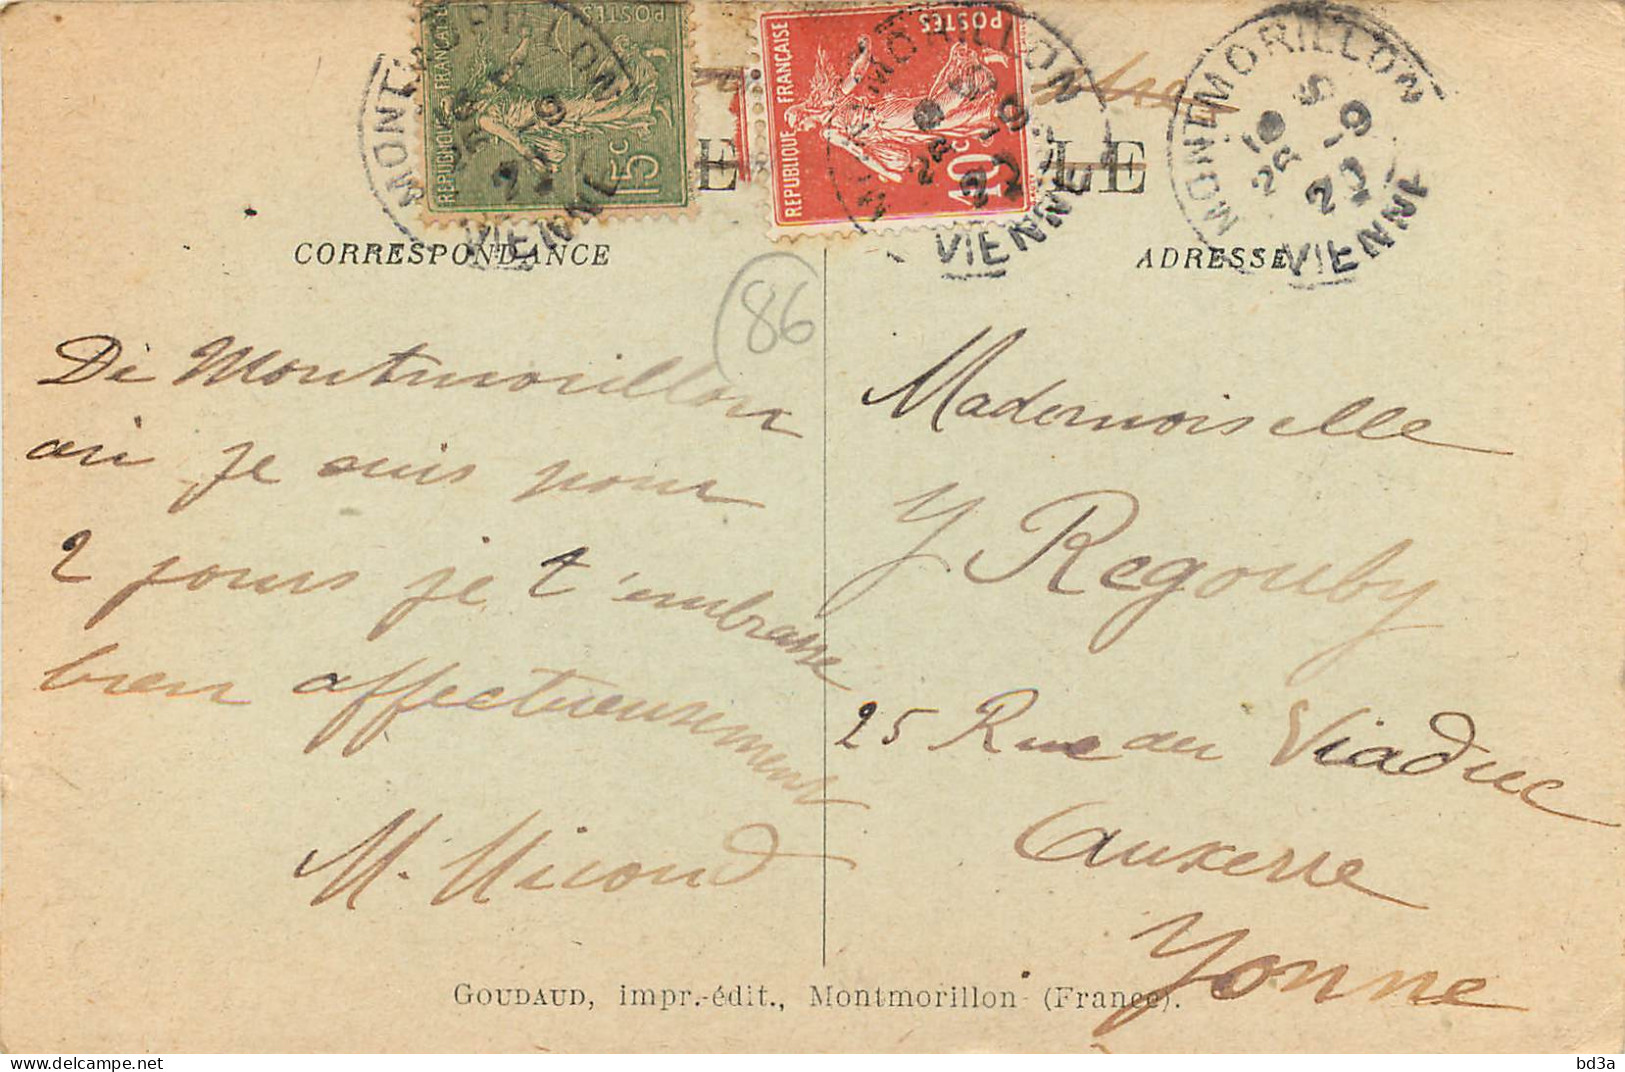 REPUBLIQUE FRANÇAISE
POSTES
15c
REPUBLIQUE FRANÇAISE
POSTES
10c
MONTMORILLON
VIENNE
MONTMORILLON
VIENNE
MONTMORILLON
10 25
5 -9
22
VIENNE
E
LE
CORRESPONDANCE
ADRESSE
86
De Montmorillon
où je suis pour
2 jours je t'embrasse
bien affectueusement
M. Micoud
Mademoiselle
Y Regouby
25 Rue du Viaduc
Auxerre
Yonne
GOUDAUD, impr.-édit., Montmorillon (France).
bd3a